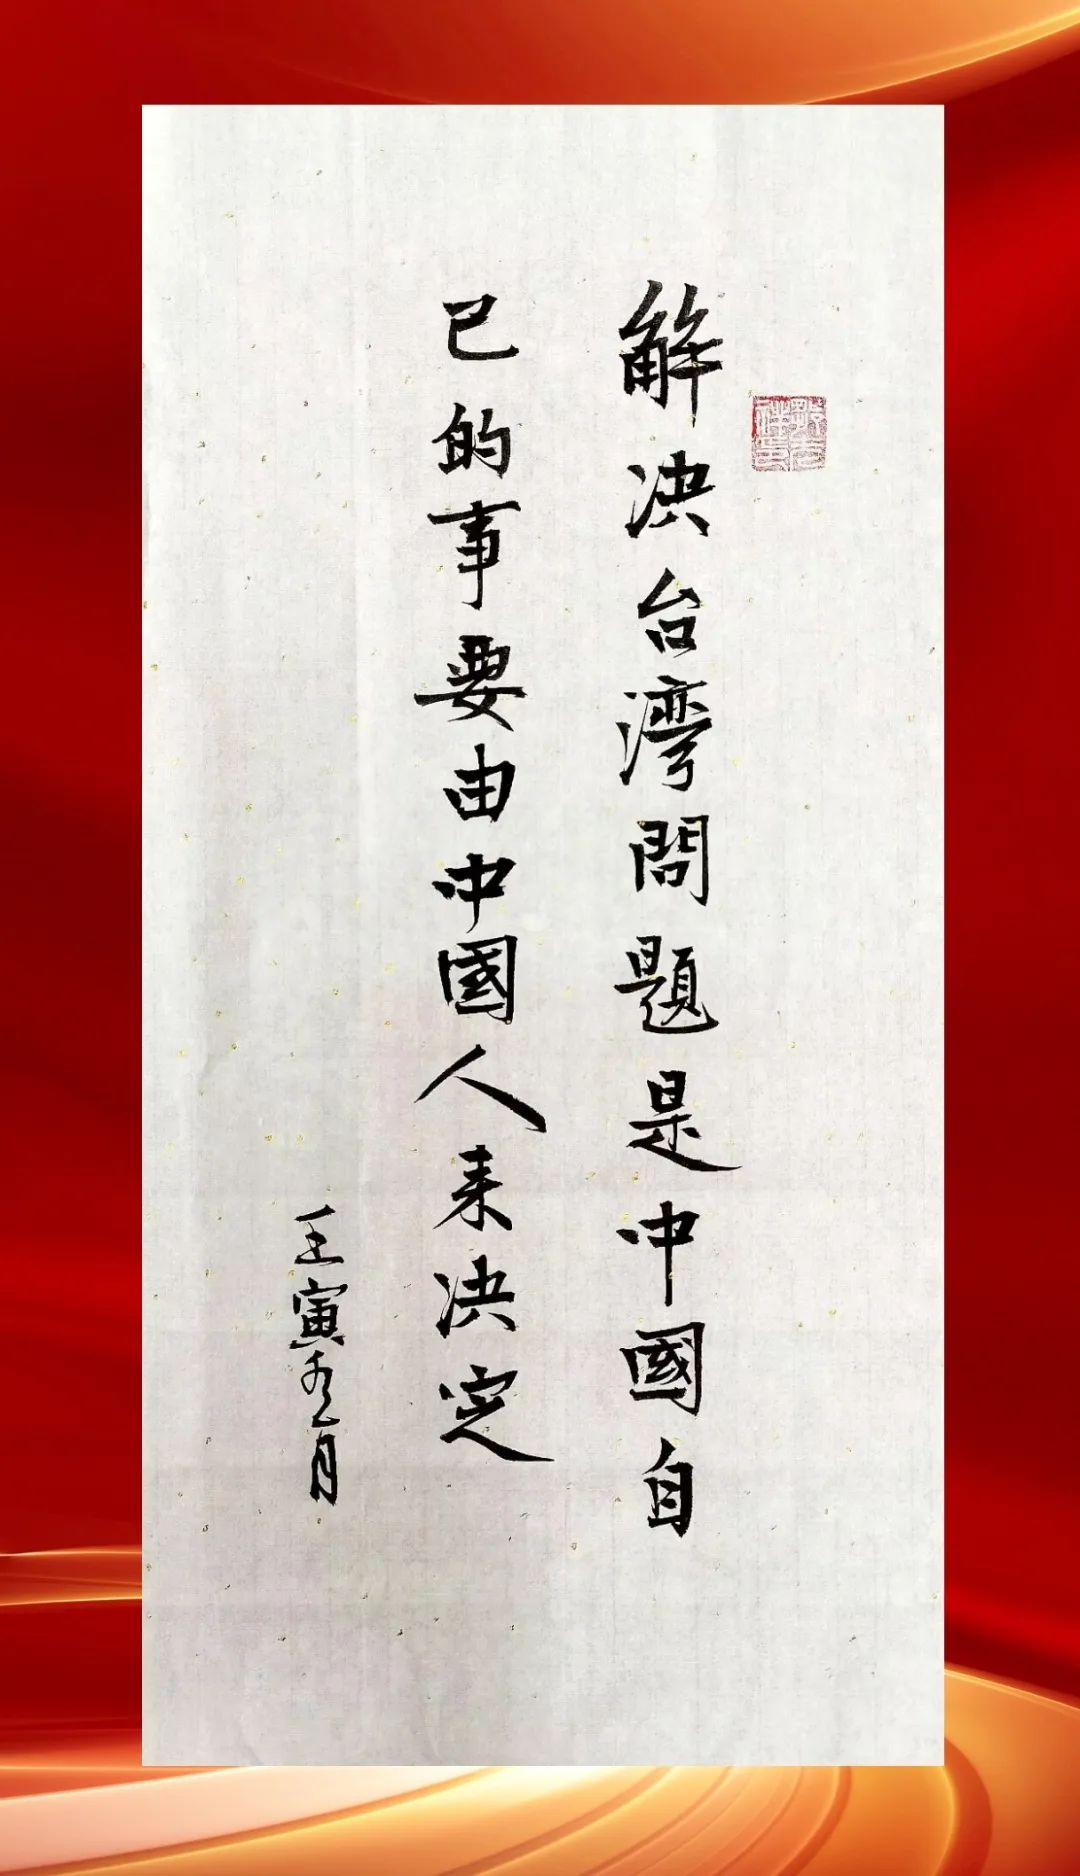 解决台灣問題是中國自
己的事要由中國人来决定
壬寅冬月